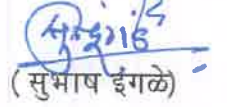 ( सुभाष इंगळे)